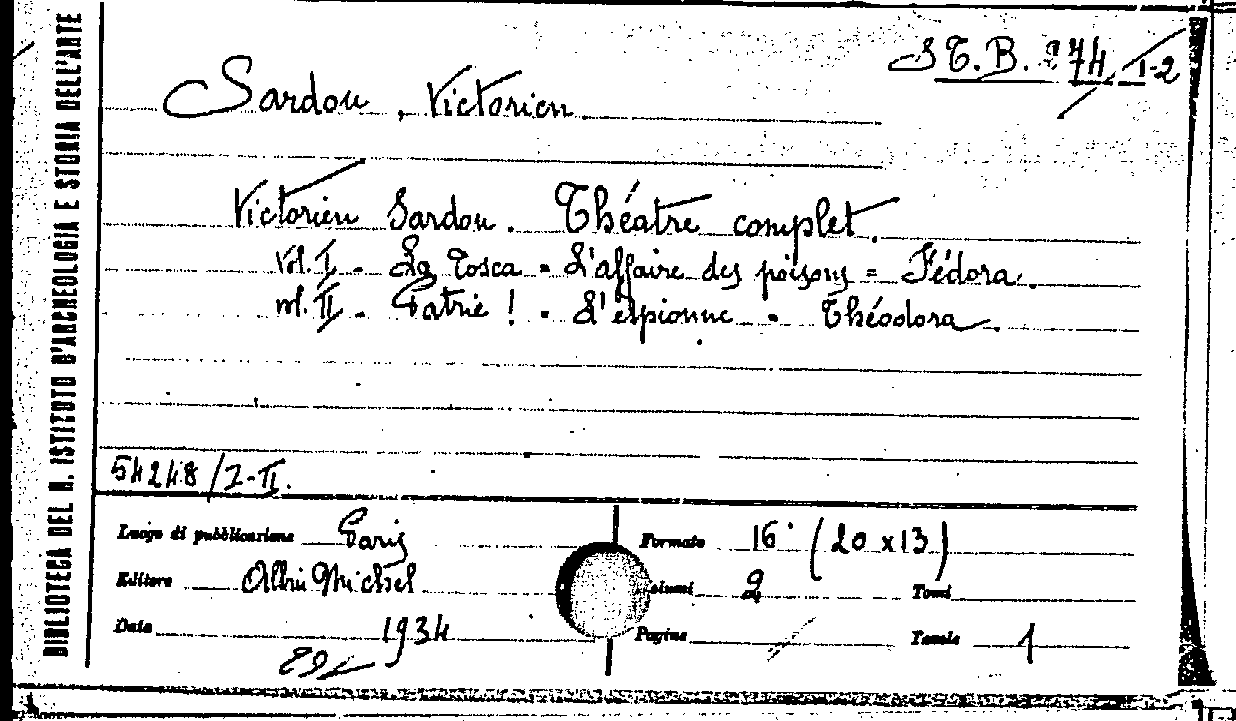 BIBLIOTECA DEL R. ISTITUTO D'ARCHEOLOGIA E STORIA DELL'ARTE
S T. B. 274 / I-2
Sardou, Victorien
Victorien Sardou. Théatre complet.
Vol. I - La Tosca - L'affaire des poisons = Fédora.
vol. II - Patrie! - L'espionne - Théodora.
54248/I-II.
Luogo di pubblicazione Paris Formato 16° (20 x 13)
Editore Albin Michel Volumi 2 Tomi
Data 1934 Pagine Tavole 1